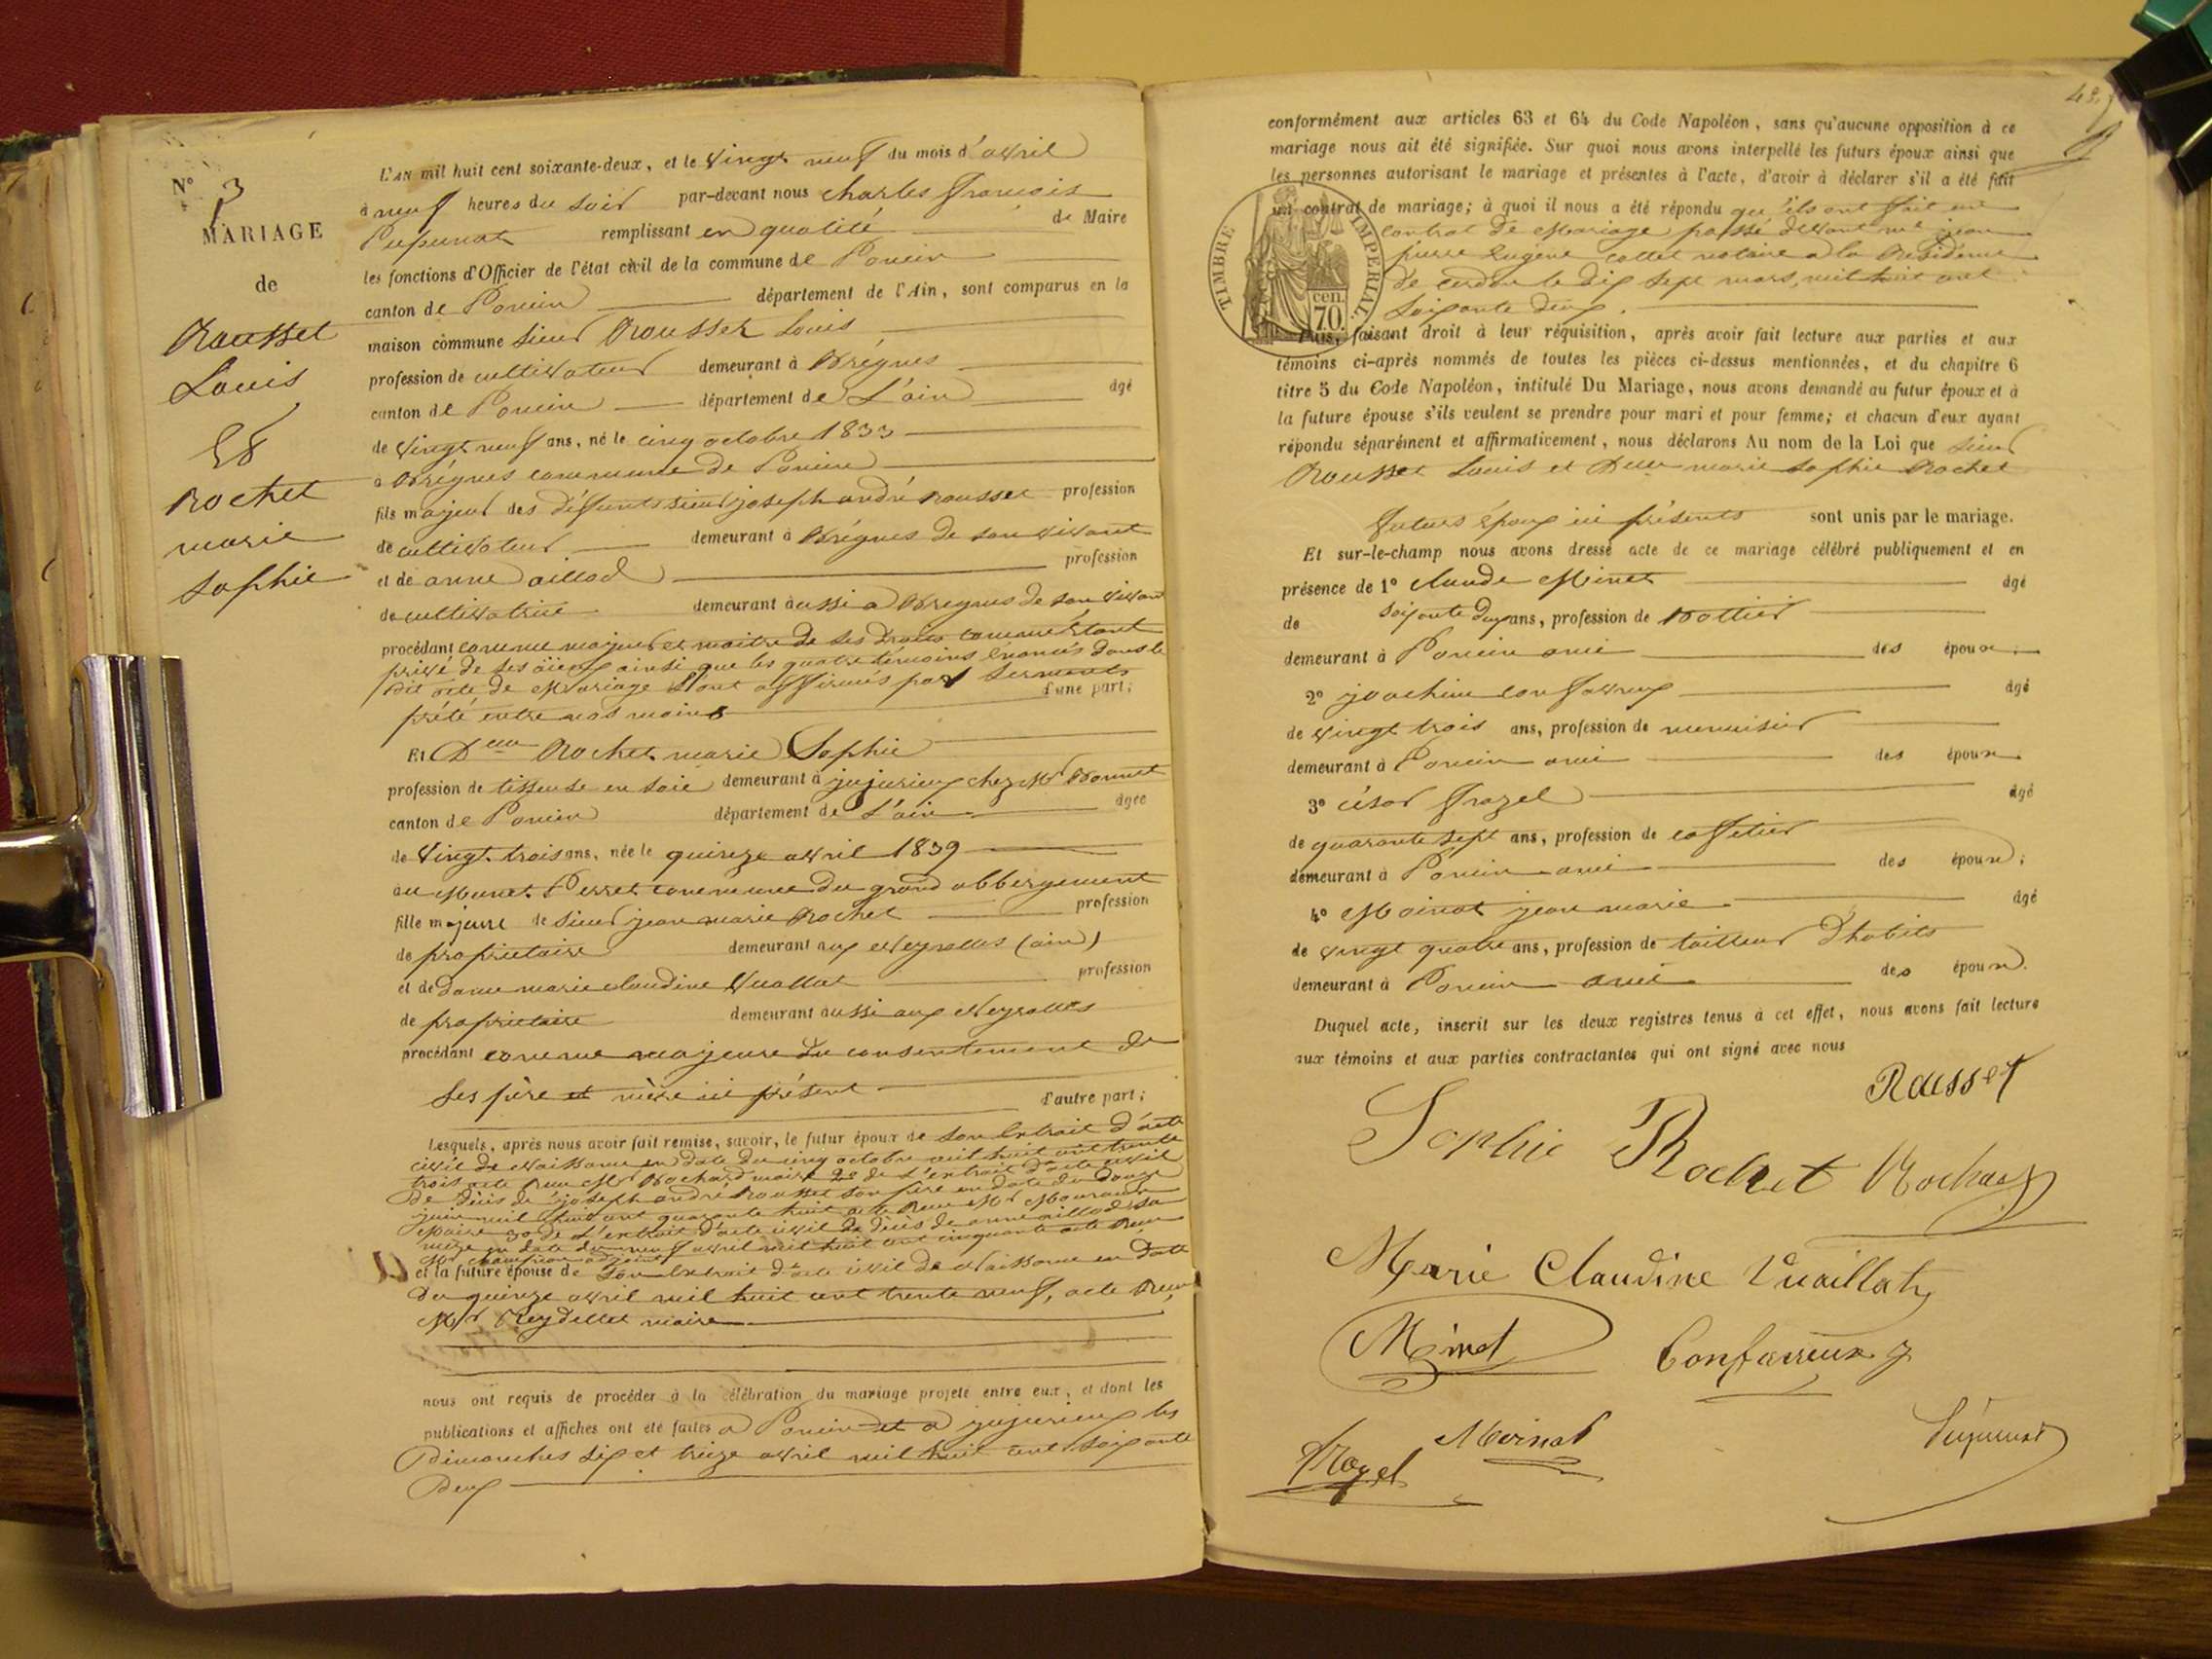 N° 3
MARIAGE
de
Rousset
Louis
Et
Rochet
marie
Sophie
L'AN mil huit cent soixante-deux, et le vingt neuf du mois d'avril
à neuf heures du soir par-devant nous charles françois
Pupunat remplissant en qualité de Maire
les fonctions d'Officier de l'état civil de la commune de Poncin
canton de Poncin département de l'Ain, sont comparus en la
maison commune sieur Rousset Louis
profession de cultivateur demeurant à Brégnes
canton de Poncin département de L'ain âgé
de vingt neuf ans, né le cinq octobre 1833
à Brégnes commune de Poncin
fils majeur des défunts sieur joseph andré Rousset profession
de cultivateur demeurant à Brégnes de son vivant
et de anne aillod profession
de cultivatrice demeurant aussi a Bregnes de son vivant
procédant comme majeur et maitre de ses droits comme étant
privé de ses aïeux ainsi que les quatre témoins énoncés dans le
dit acte de Mariage l'ont affirmés par serments
prété entre nos mains d'une part;
Et Delle Rochet marie Sophie
profession de tisseuse en soie demeurant à jujurieux chez Mr Bonnet
canton de Poncin département de L'ain âgée
de vingt trois ans, née le quinze avril 1839
au Munet Perret commune du grand abbergement
fille majeure de sieur jean marie Rochet profession
de propriétaire demeurant aux Neyrolles (ain)
et de dame marie claudine Vuallat profession
de propriétaire demeurant aussi aux Neyrolles
procédant comme majeure du consentement de
ses père et mère ici présent d'autre part;
Lesquels, après nous avoir fait remise, savoir, le futur époux de son Extrait d'acte
civil de Naissance en date du cinq octobre mil huit cent trente
trois acte Reçu Mr Rochard maire 2° de L'extrait d'acte civil
de décès de joseph andré Rousset son père en date du douze
juin mil huit cent quarante huit acte Reçu Mr
Maire 3° de L'extrait d'acte civil de décès de anne aillod sa
mère en date du neuf avril mil huit cent cinquante acte Reçu
Mr adjoint
et la future épouse de son Extrait d'acte civil de Naissance en date
du quinze avril mil huit cent trente neuf, acte Reçu
Mr Reydellet maire
nous ont requis de procéder à la célébration du mariage projeté entre eux, et dont les
publications et affiches ont été faites a Poncin et a jujurieux les
Dimanches six et treize avril mil huit cent soixante
Deux
conformément aux articles 63 et 64 du Code Napoléon, sans qu'aucune opposition à ce
mariage nous ait été signifiée. Sur quoi nous avons interpellé les futurs époux ainsi que
les personnes autorisant le mariage et présentes à l'acte, d'avoir à déclarer s'il a été fait
un contrat de mariage; à quoi il nous a été répondu qu'ils ont fait un
contrat de Mariage passé devant me jean
pierre Eugène collet notaire a la Résidence
de cerdon le dix sept mars, mil huit cent
soixante deux.
TIMBRE IMPERIAL
cen.
70.
Puis, faisant droit à leur réquisition, après avoir fait lecture aux parties et aux
témoins ci-après nommés de toutes les pièces ci-dessus mentionnées, et du chapitre 6
titre 5 du Code Napoléon, intitulé Du Mariage, nous avons demandé au futur époux et à
la future épouse s'ils veulent se prendre pour mari et pour femme; et chacun d'eux ayant
répondu séparément et affirmativement, nous déclarons Au nom de la Loi que sieur
Rousset Louis et Delle marie Sophie Rochet
futurs époux ici présents sont unis par le mariage.
Et sur-le-champ nous avons dressé acte de ce mariage célébré publiquement et en
présence de 1° claude Minet âgé
de soixante deux ans, profession de Bottier
demeurant à Poncin ami des époux;
2° joachim confavreux âgé
de vingt trois ans, profession de menuisier
demeurant à Poncin ami des époux
3° césar frazel âgé
de quarante sept ans, profession de caffetier
demeurant à Poncin ami des époux;
4° Moinat jean marie âgé
de vingt quatre ans, profession de tailleur d'habits
demeurant à Poncin ami des époux.
Duquel acte, inscrit sur les deux registres tenus à cet effet, nous avons fait lecture
aux témoins et aux parties contractantes qui ont signé avec nous
Rousset
Sophie Rochet Rochet
Marie Claudine Vuaillat
Minet Confavreux
frazel Moinat Pupunat